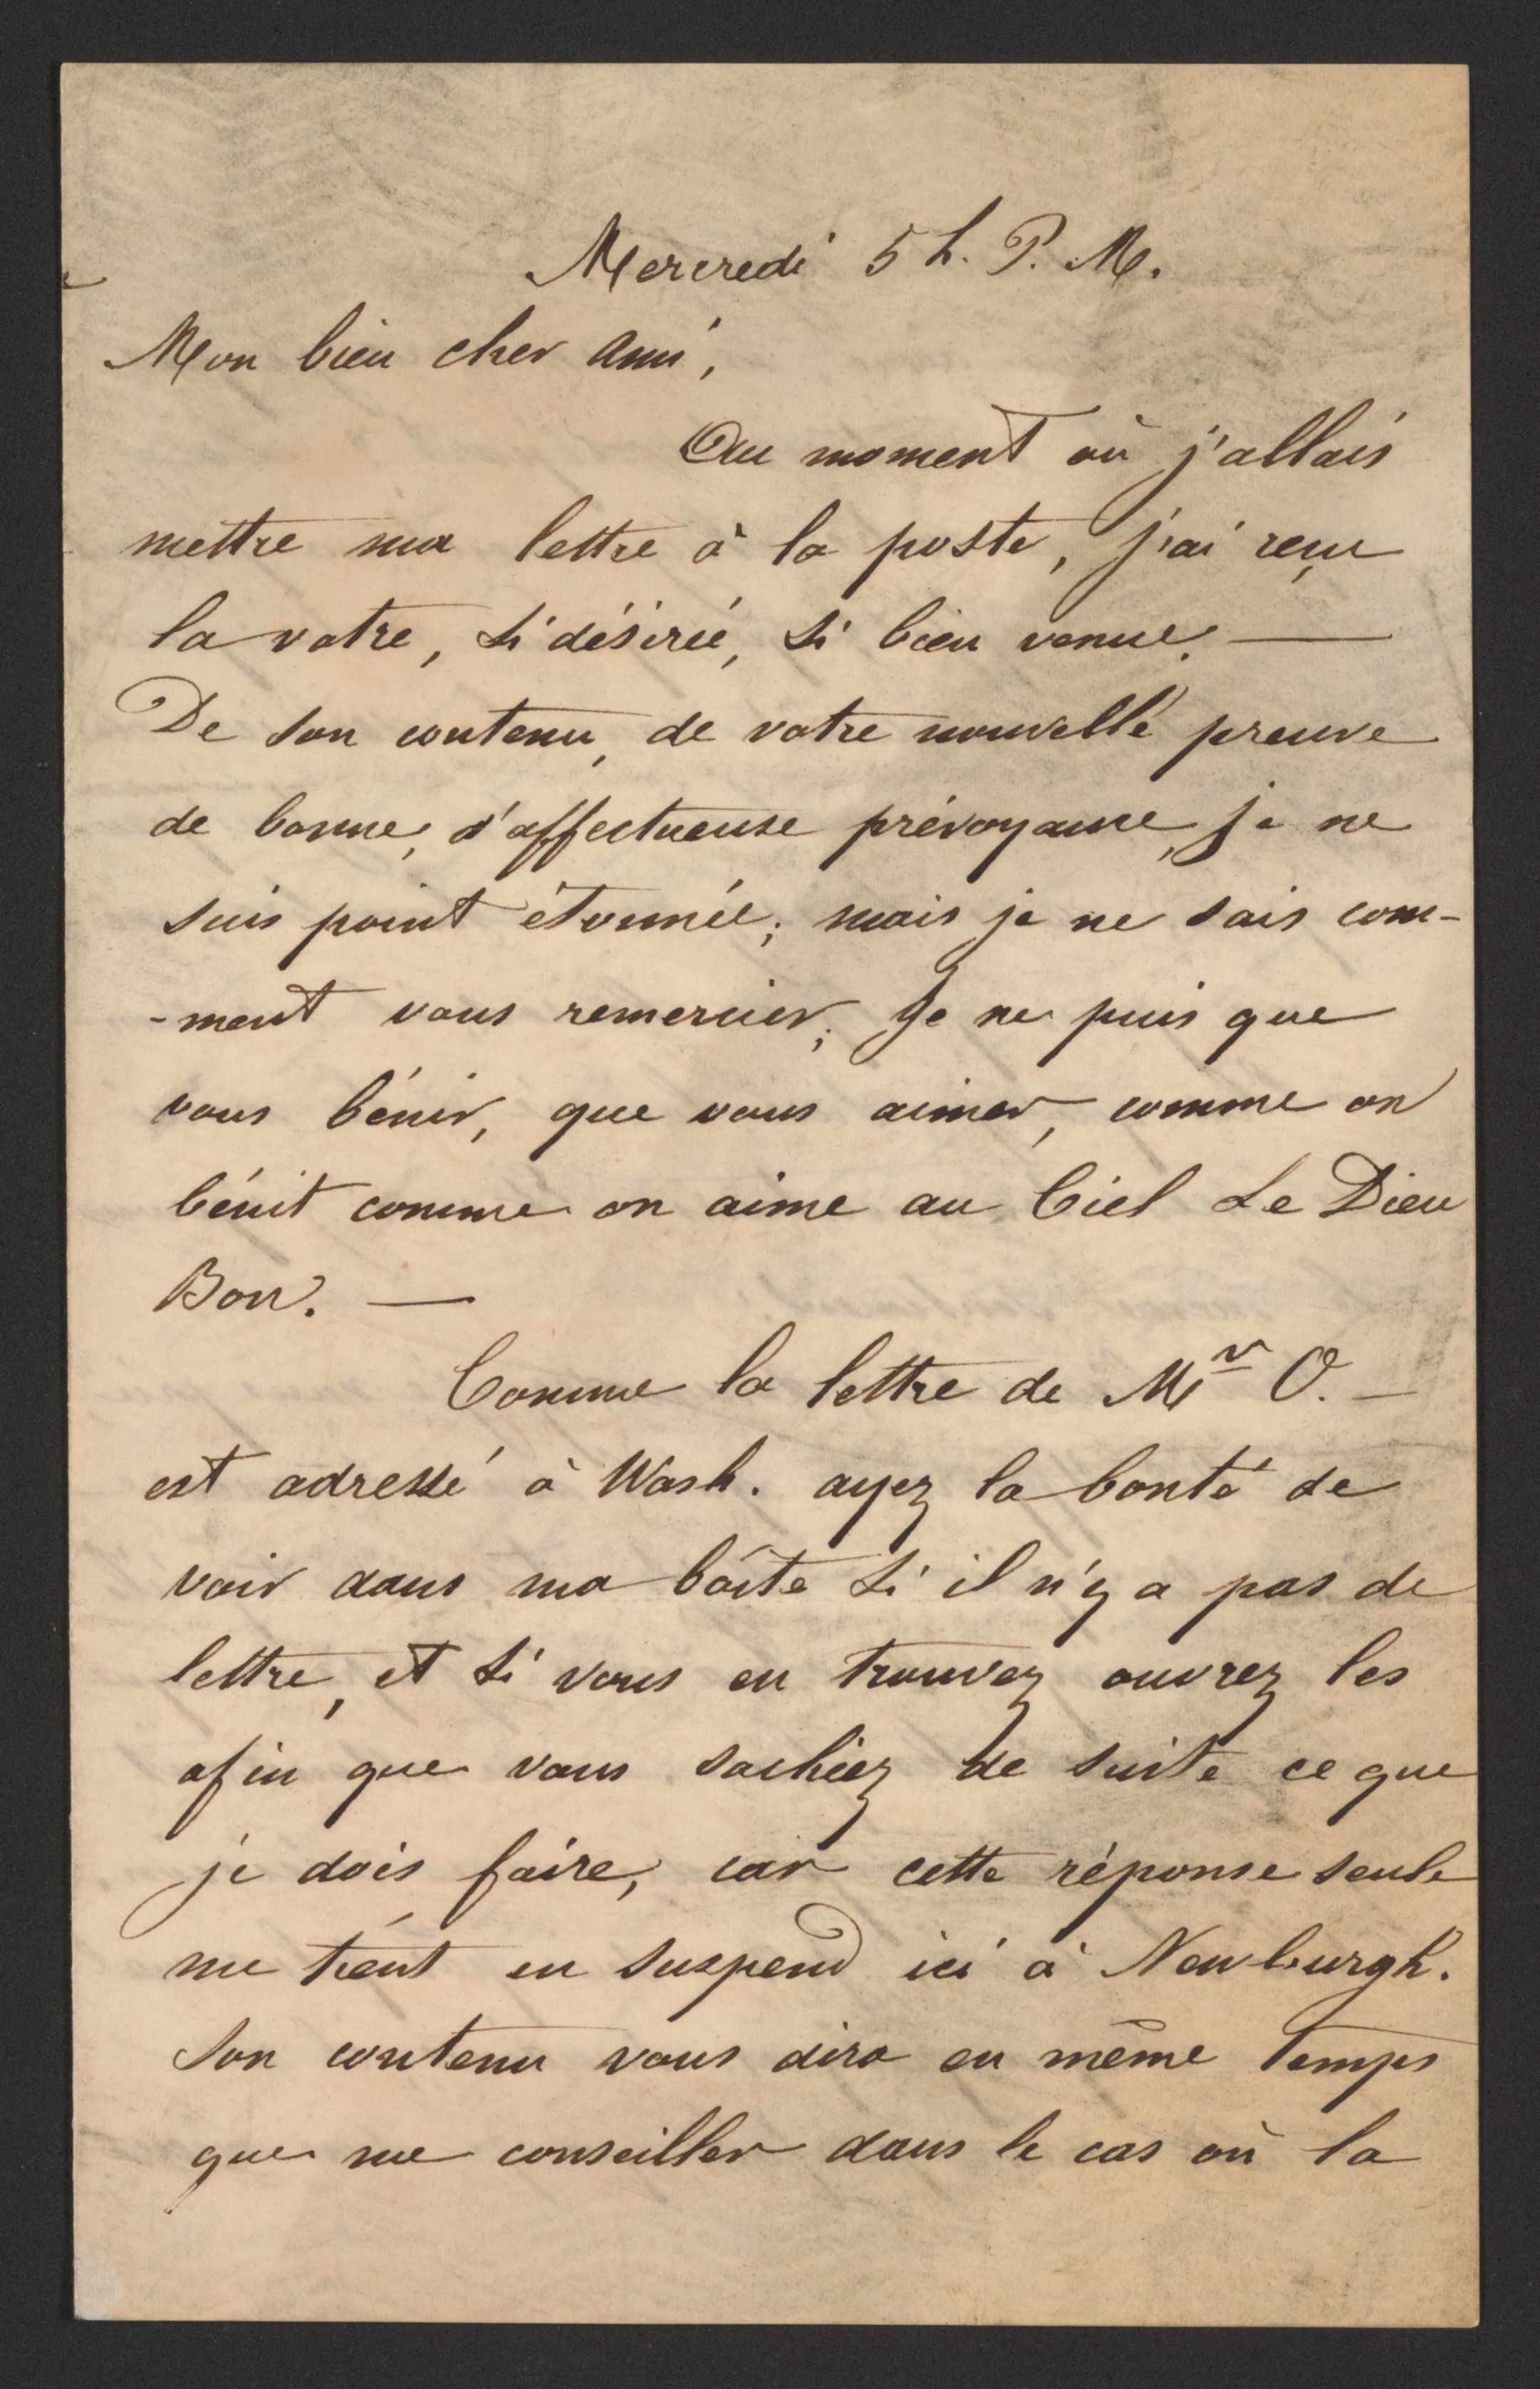 Mercredi 5 h. P. M.
Mon bien cher ami,
Au moment où j'allais
mettre ma lettre à la poste, j'ai reçu
la votre, si désirée, si bien venue. —
De son contenu, de votre nouvelle preuve
de bonne, d'affectueuse prévoyance, je ne
suis point étonnée; mais je ne sais com-
-ment vous remercier; Je ne puis que
vous bénir, que vous aimer, comme on
bénit comme on aime au Ciel Le Dieu
Bon. —
Comme la lettre de Mr O. —
est adressé à Wash. ayez la bonté de
voir dans ma boîte si il n'y a pas de
lettre, et si vous en trouvez ouvrez les
afin que vous sachiez de suite ce que
je dois faire, car cette réponse seule
me tient en suspend ici à Newburgh.
Son contenu vous dira en même temps
que me conseiller dans le cas où la